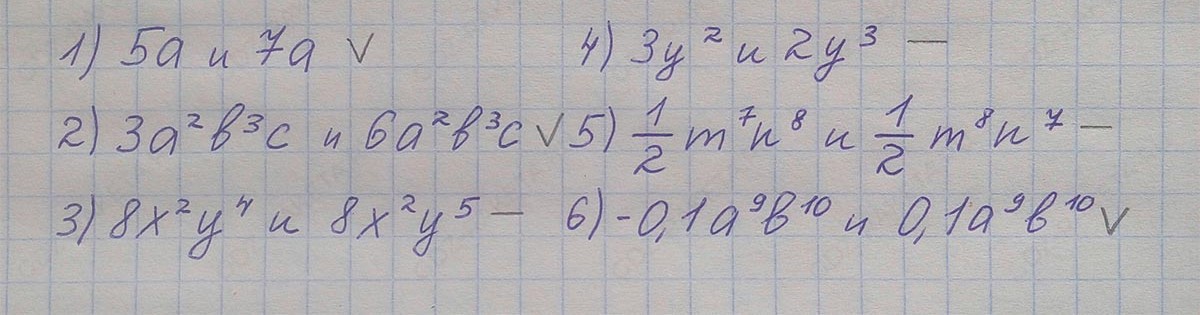 1) 5a и 7a ✓ 4) 3y² и 2y³ —
2) 3a²b³c и 6a²b³c ✓ 5) 1/2 m⁷n⁸ и 1/2 m⁸n⁷ —
3) 8x²y⁴ и 8x²y⁵ — 6) -0,1a⁹b¹⁰ и 0,1a⁹b¹⁰ ✓